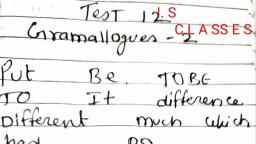 Test 12
I.S CLASSES
Gramallogues - 2
Put Be TOBE
TO It difference
Different much which
had DO